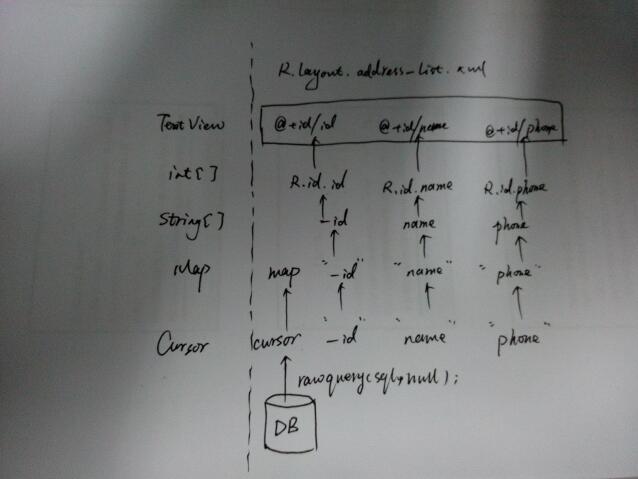 R.layout.address-list.xml
TextView @+id/id @+id/name @+id/phone
int[] R.id.id R.id.name R.id.phone
String[] -id name phone
Map map "-id" "name" "phone"
Cursor cursor "-id" "name" "phone"
rawquery(sql, null);
DB